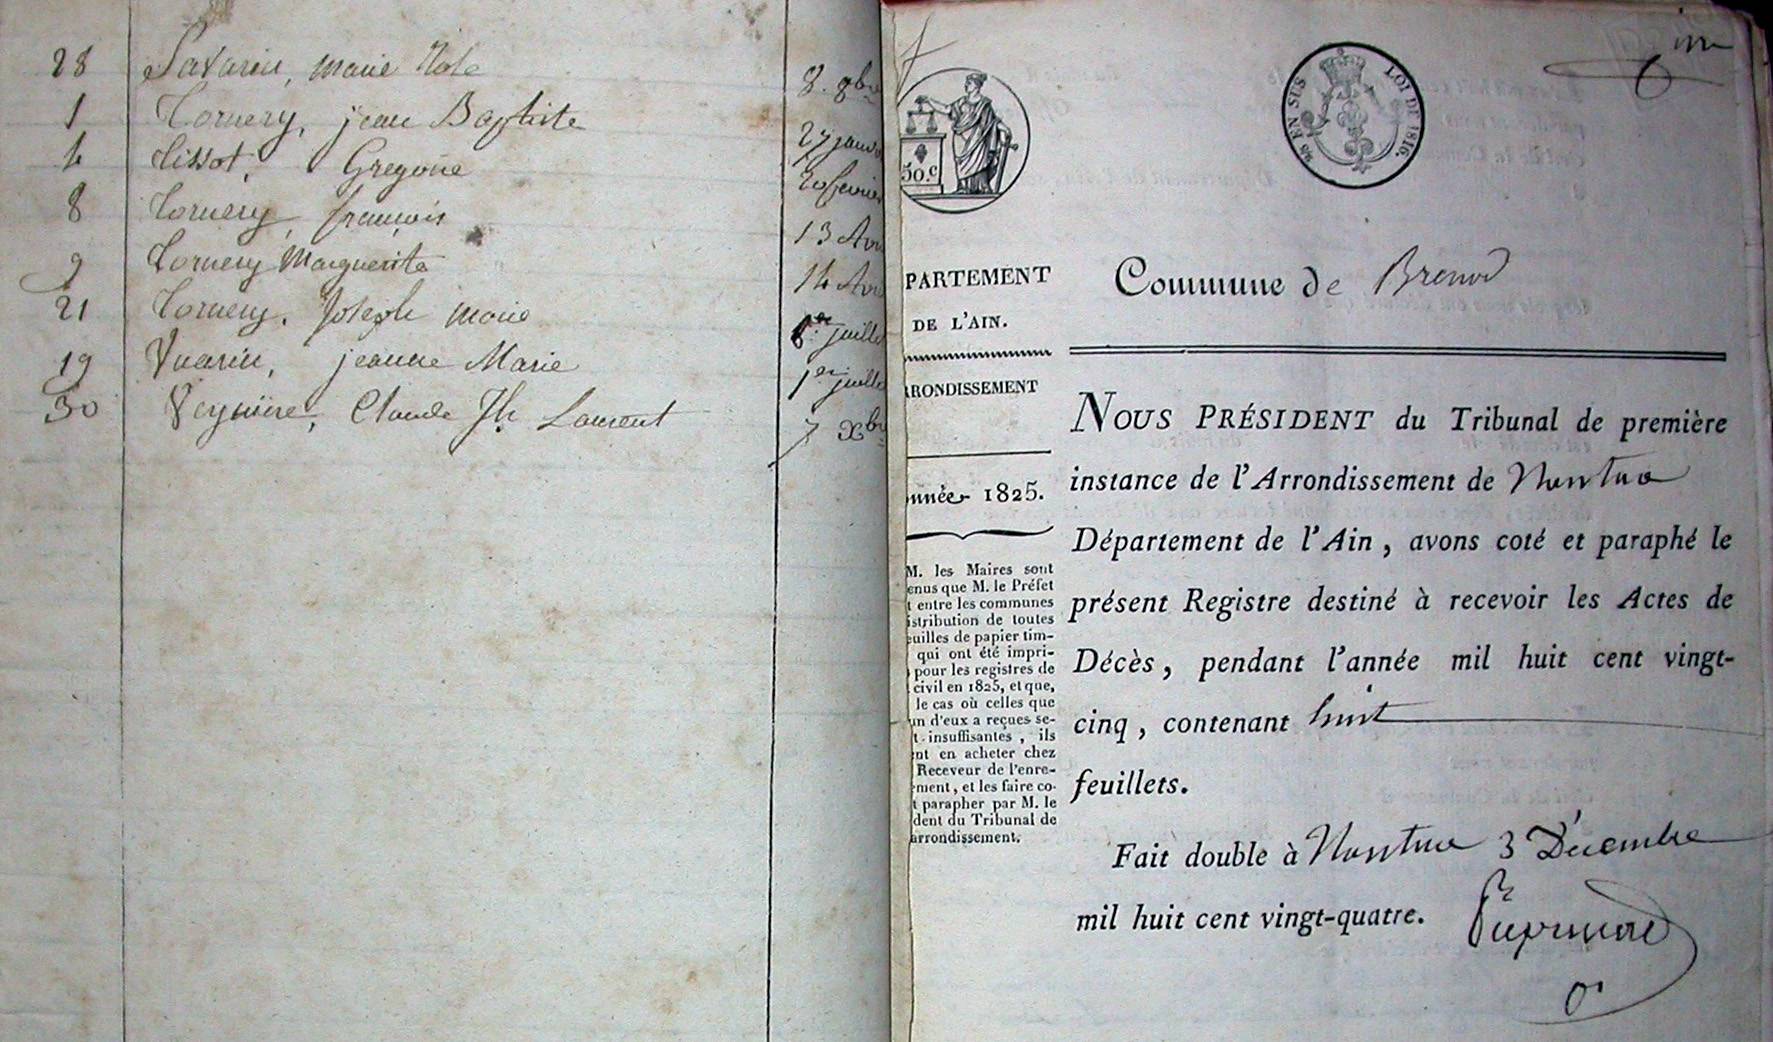 28 Savarin, Marie Rose 8. 8bre
1 Tornery, jean Baptiste 27 janv
4 Tissot, Gregoire 20 fevrier
8 Tornery, françois 13 Avri
9 Tornery Marguerite 14 Avri
21 Tornery, Joseph Marie juille
19 Vuarin, jeanne Marie 1er juille
30 Claude Jh Laurent 7 Xbre
50.c
25 EN SUS LOI DE 1816.
PARTEMENT
DE L'AIN.
RRONDISSEMENT
nnée 1825.
M. les Maires sont
enus que M. le Préfet
t entre les communes
istribution de toutes
euilles de papier tim-
qui ont été impri-
pour les registres de
civil en 1825, et que,
le cas où celles que
un d'eux a reçues se-
t insuffisantes, ils
nt en acheter chez
Receveur de l'enre-
ment, et les faire co-
t parapher par M. le
dent du Tribunal de
arrondissement.
Commune de Brenod
NOUS PRÉSIDENT du Tribunal de première
instance de l'Arrondissement de Nantua
Département de l'Ain, avons coté et paraphé le
présent Registre destiné à recevoir les Actes de
Décès, pendant l'année mil huit cent vingt-
cinq, contenant huit
feuillets.
Fait double à Nantua 3 Décembre
mil huit cent vingt-quatre.